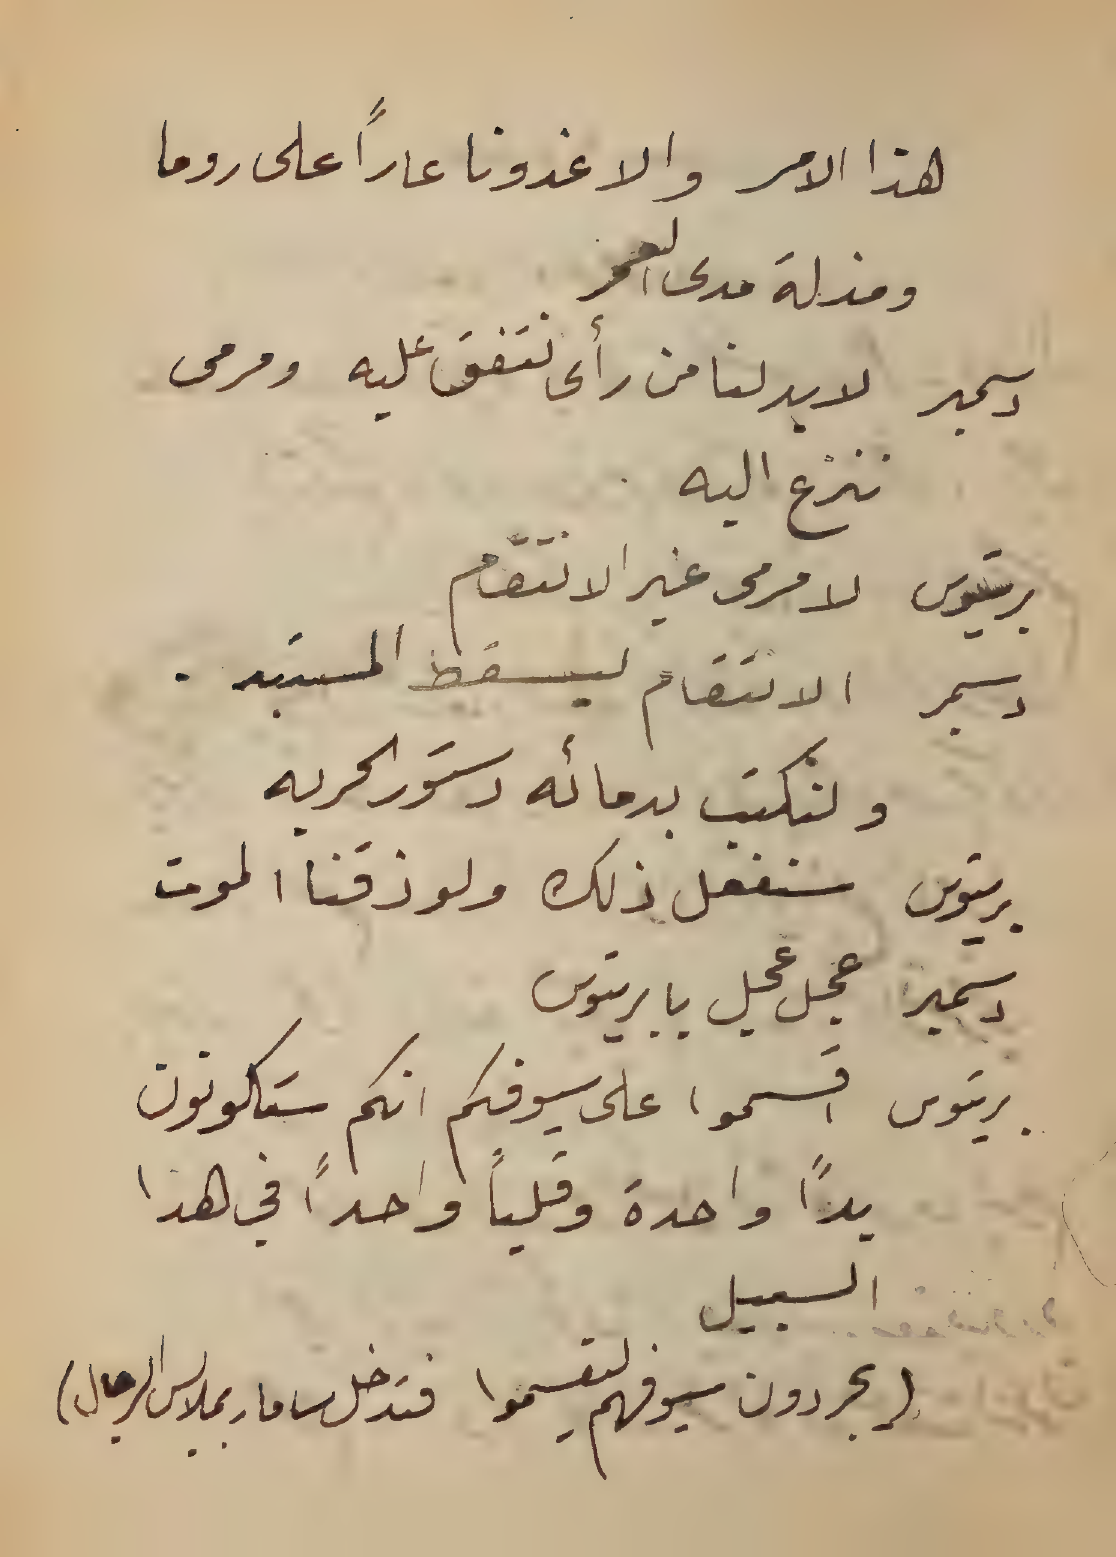 هذا الامر والا غدونا عاراً على روما
ومذلة مدى العمر
دسمبر لا بد لنا من رأى نتفق عليه ومرمى
ننزع اليه
بريتوس لا مرمى غير الانتقام
دسمبر الانتقام ليسقط المستبد .
ولنكتب بدمائه دستور الحريه
بريتوس سنفعل ذلك ولو ذقنا الموت
دسمبر عجل عجل يا بريتوس
بريتوس اقسموا على سيوفكم انكم ستكونون
يداً واحدة وقلباً واحداً في هذا
السبيل
(يجردون سيوفهم ليقسموا فتدخل سامار بملابس الرجال)